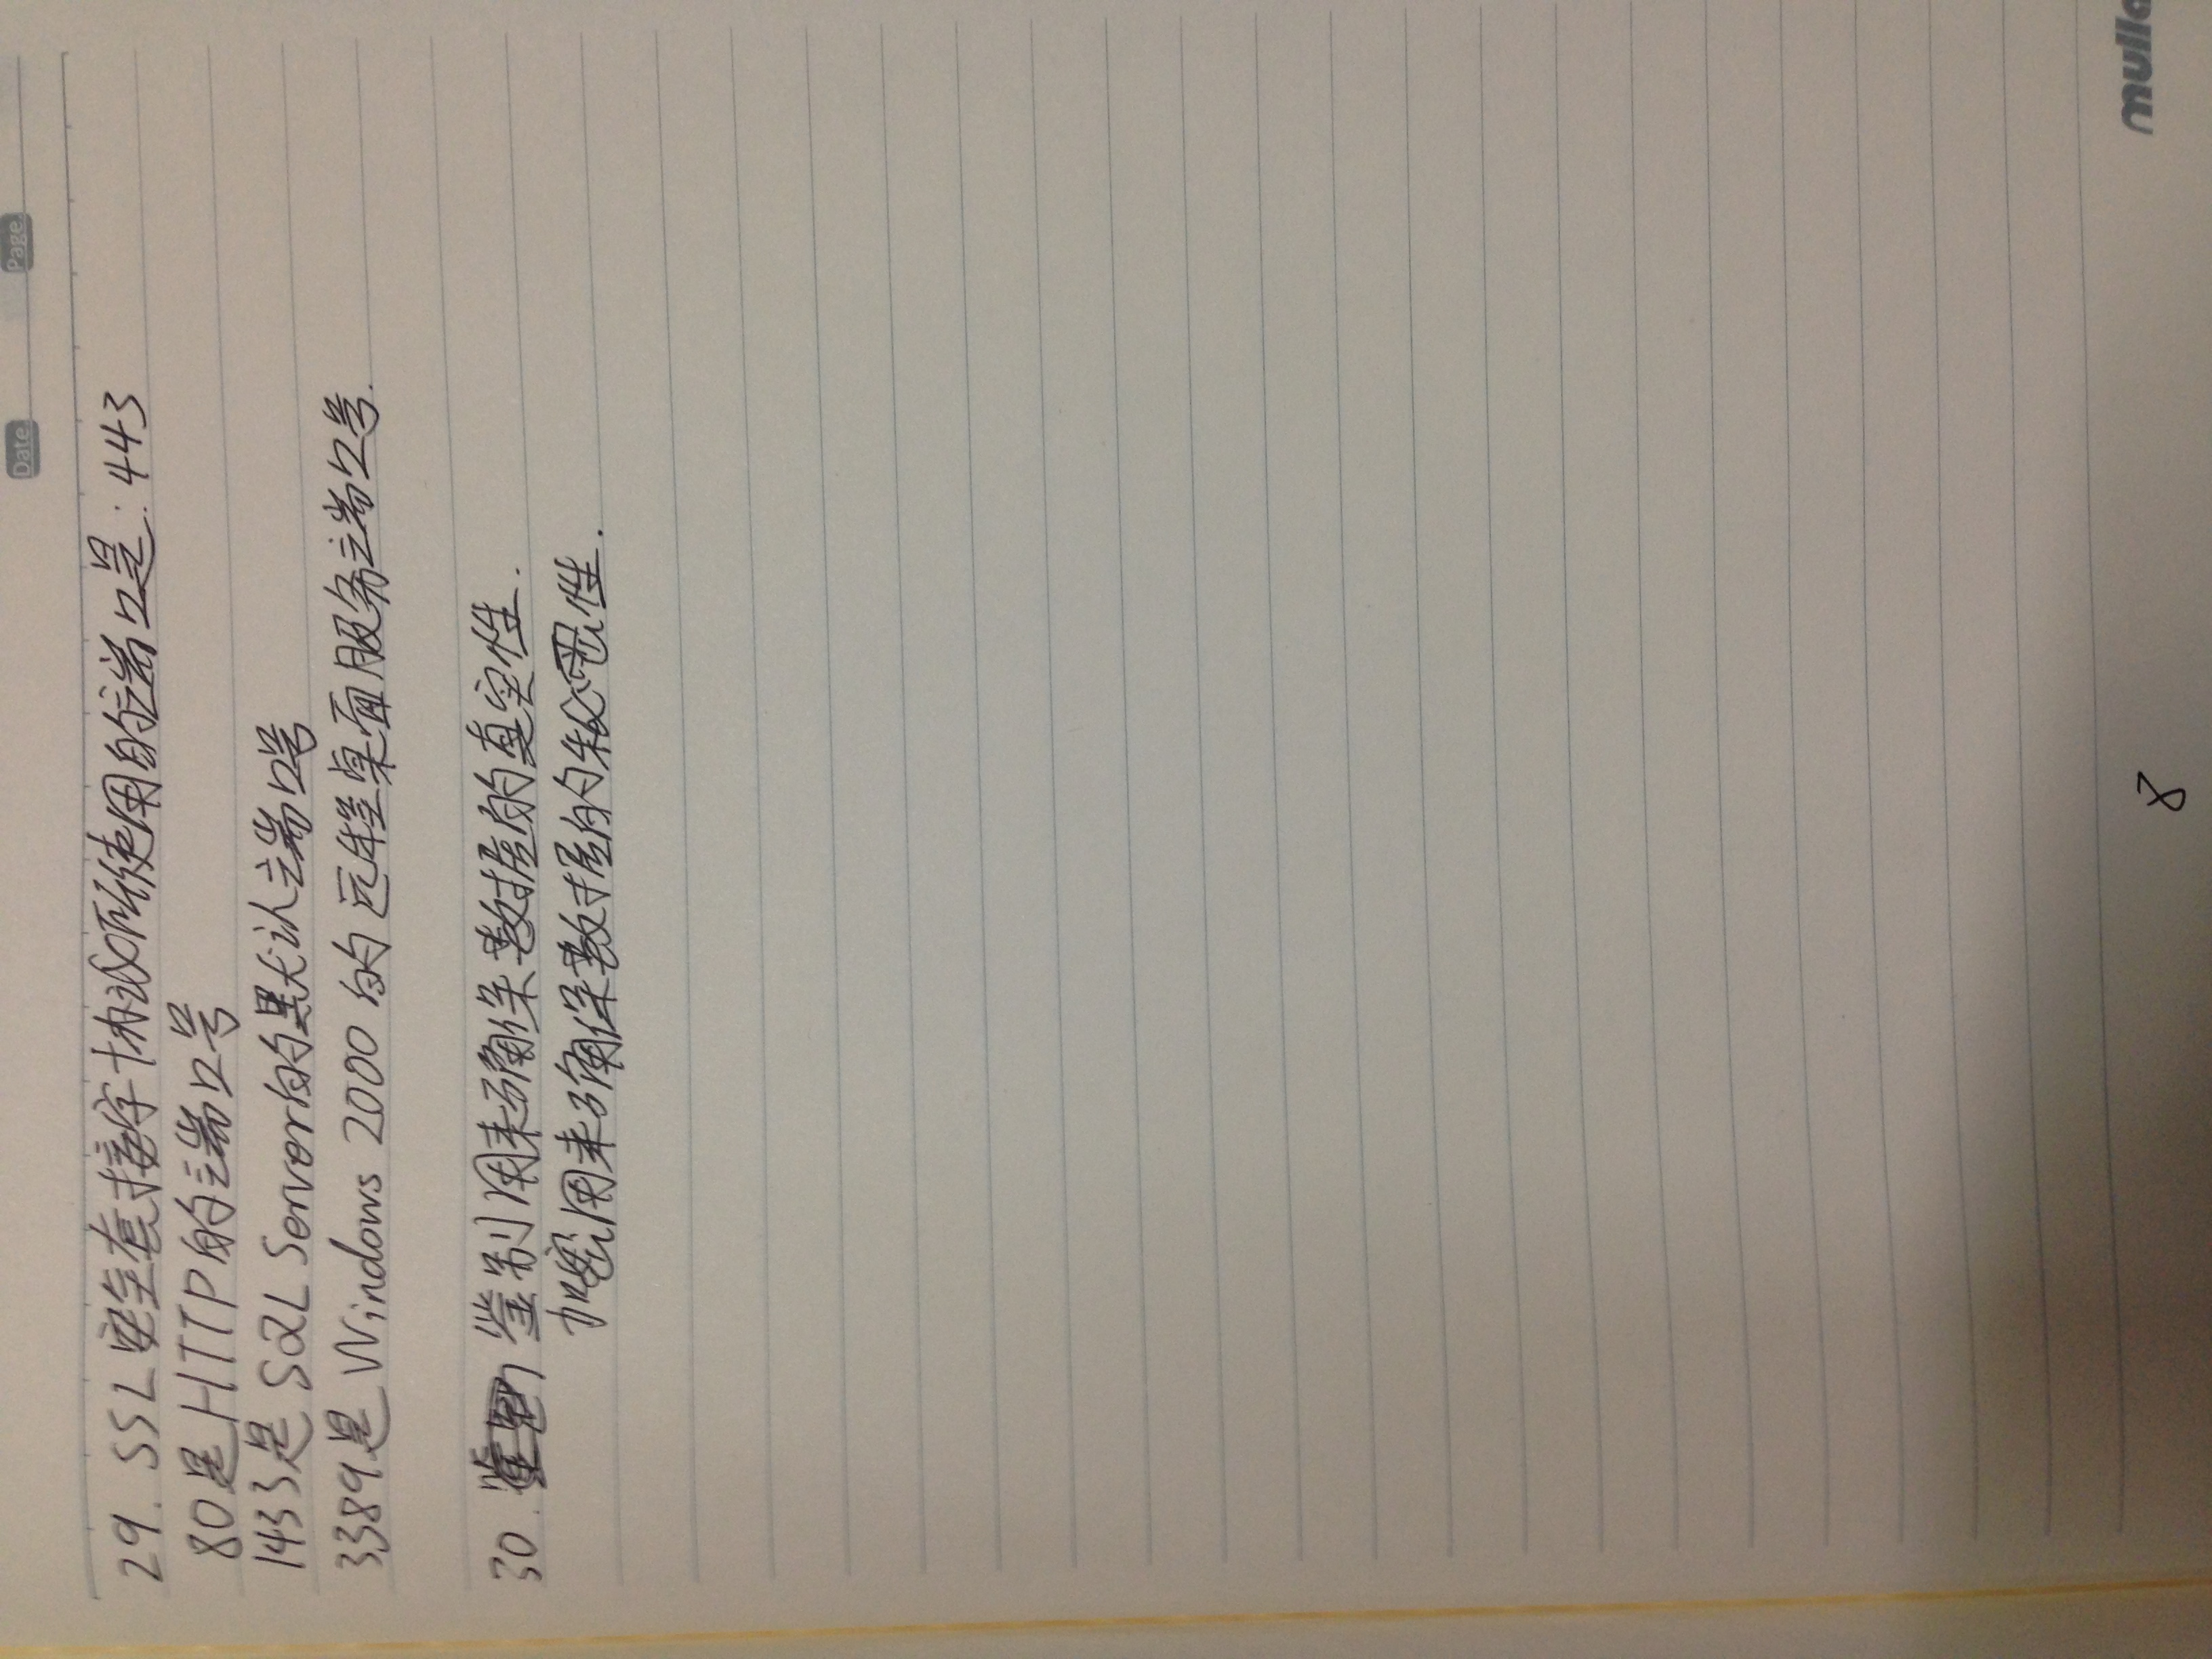 Date.
Page.
29. SSL安全套接字协议所使用的端口是: 443
80是HTTP的端口号
1433是SQL Server的默认端口号
3389是Windows 2000的远程桌面服务端口号.
30. 鉴别用来确保数据的真实性.
加密用来确保数据的秘密性.
8